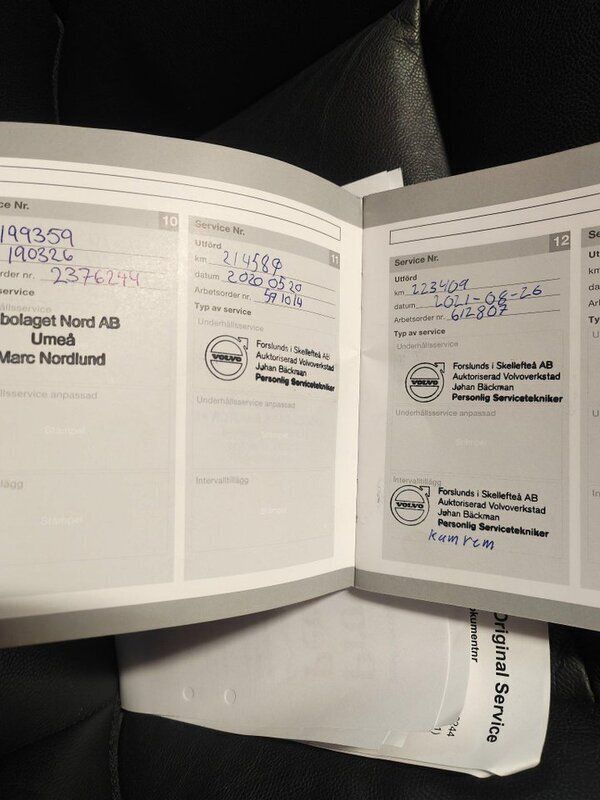 ce Nr.
10
199359
190326
rder nr. 2376244
ervice
bolaget Nord AB
Umeå
Marc Nordlund
ållsservice anpassad
Stämpel
tillägg
Stämpel
Service Nr.
11
Utförd
km 214580
datum 2020 05 20
Arbetsorder nr. 591014
Typ av service
Underhållsservice
VOLVO
Forslunds i Skellefteå AB
Auktoriserad Volvoverkstad
Johan Bäckman
Personlig Servicetekniker
Underhållsservice anpassad
Intervalltillägg
Stämpel
Service Nr.
12
Utförd
km 223409
datum 2021-08-26
Arbetsorder nr. 612807
Typ av service
Underhållsservice
VOLVO
Forslunds i Skellefteå AB
Auktoriserad Volvoverkstad
Johan Bäckman
Personlig Servicetekniker
Underhållsservice anpassad
Stämpel
Intervalltillägg
VOLVO
Forslunds i Skellefteå AB
Auktoriserad Volvoverkstad
Johan Bäckman
Personlig Servicetekniker
kamrem
Se
Ut
km
da
Ar
Ty
Original Service
okumentnr